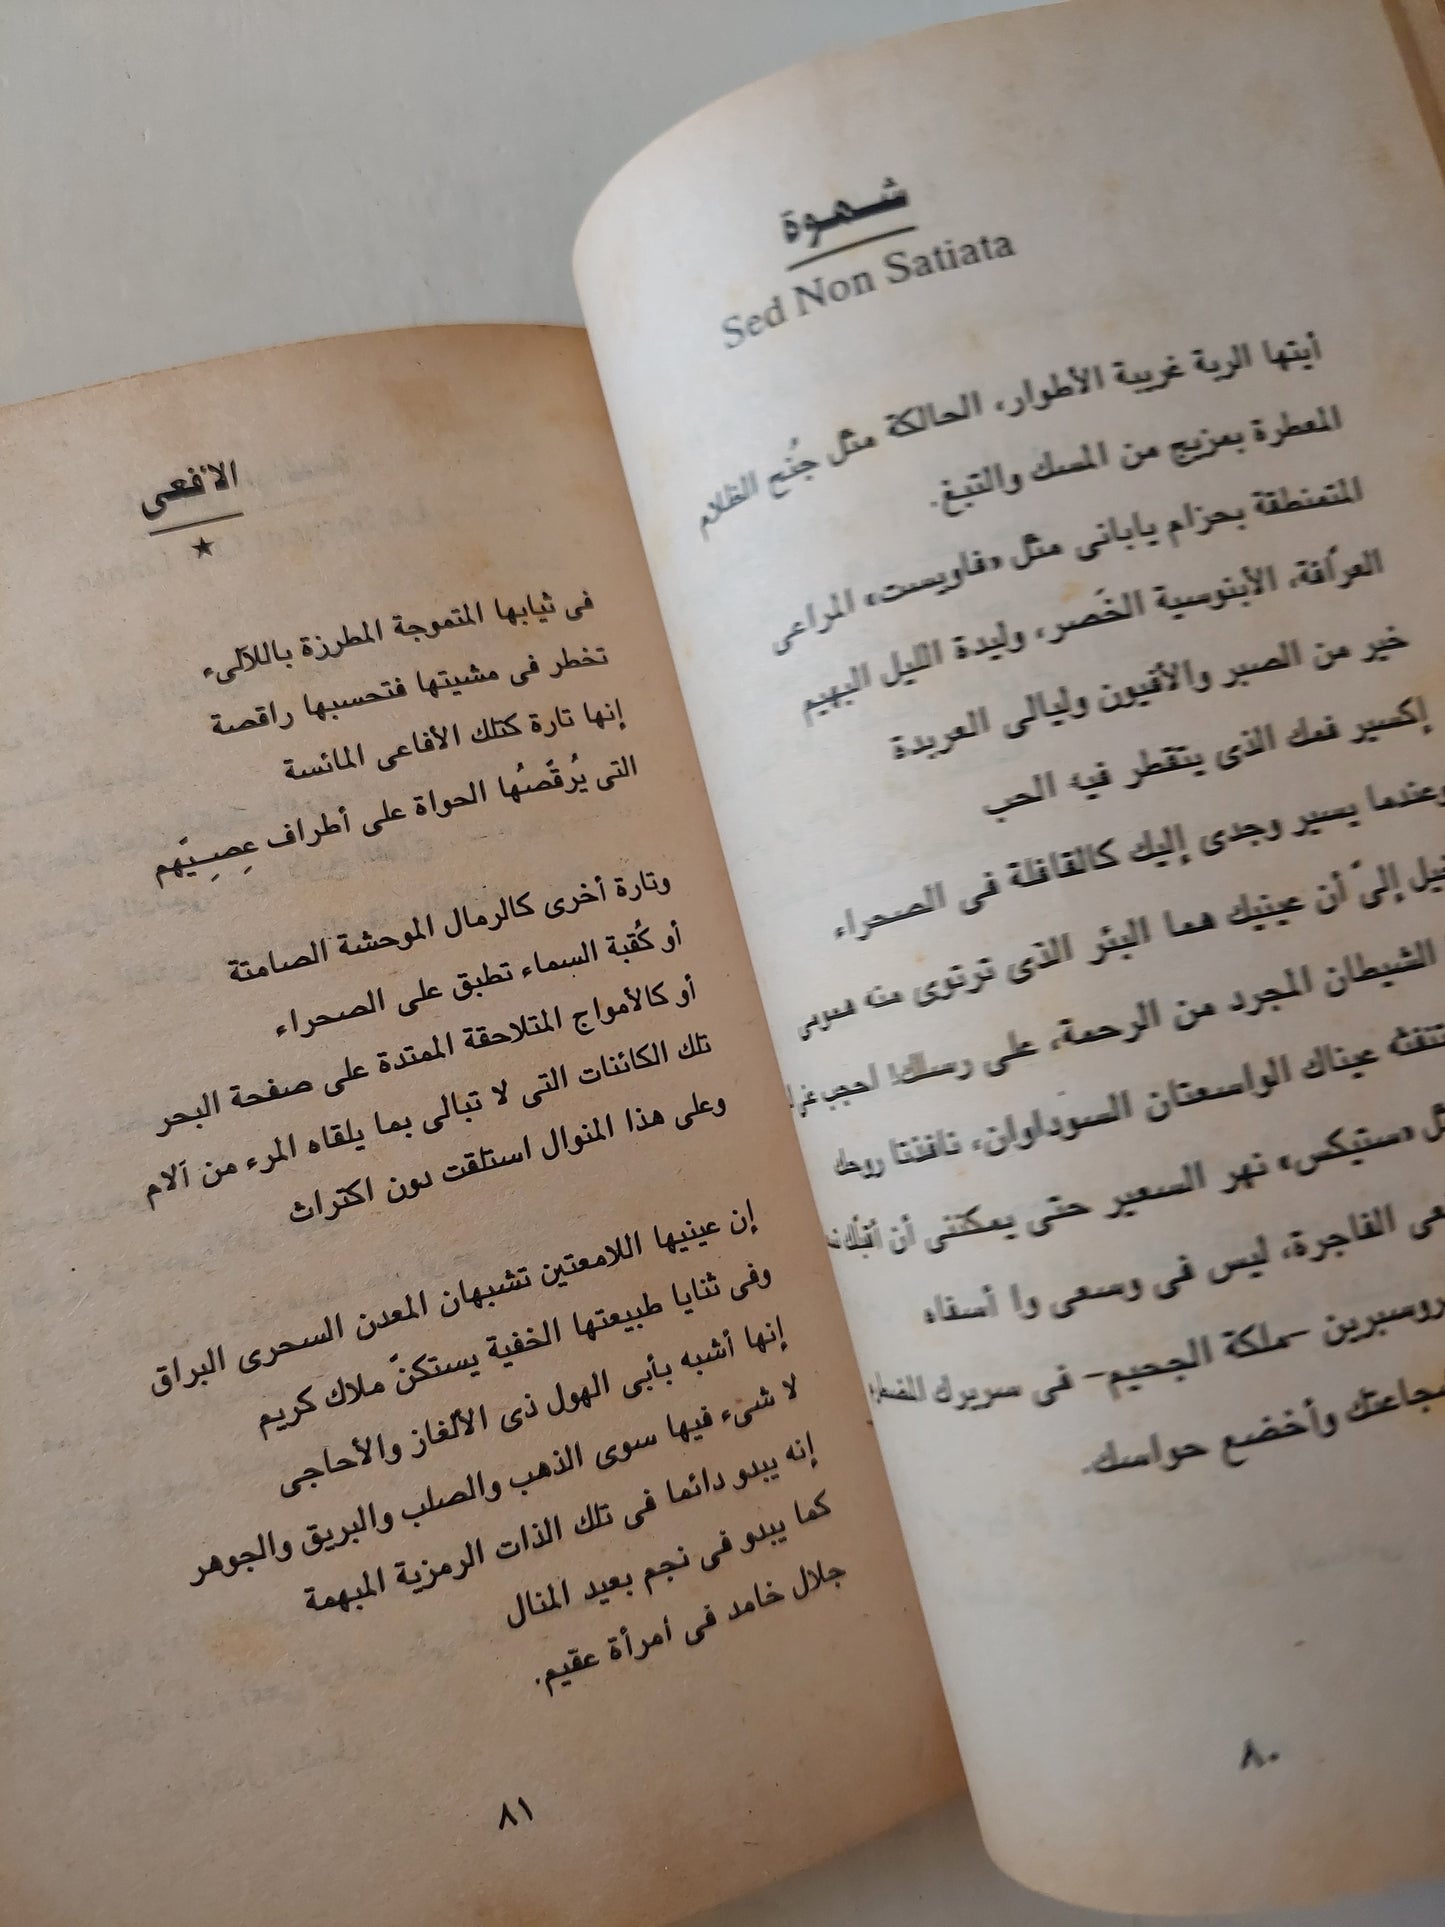 شهوة
Sed Non Satiata
أيتها الربة غريبة الأطوار، الحالكة مثل جُنح الظلام
المعطرة بمزيج من المسك والتبغ.
المتمنطقة بحزام يابانى مثل «فاويست» المراعى
العرّافة، الأبنوسية الخَصر، وليدة الليل البهيم
خير من الصبر والأفيون وليالى العربدة
إكسير فمك الذى يتقطر فيه الحب
وعندما يسير وجدى إليك كالقافلة فى الصحراء
إلىّ أن عينيك هما البئر الذى ترتوى منه همومى
الشيطان المجرد من الرحمة، على رسلك! احجب عنى
عيناك الواسعتان السوداوان، نافذتا روحك
«ستيكس» نهر السعير حتى يمكننى أن
الفاجرة، ليس فى وسعى وا أسفاه
روسبرين -ملكة الجحيم- فى سريرك
وأخضع حواسك.
٨٠
الأفعى
★
فى ثيابها المتموجة المطرزة باللآلىء
تخطر فى مشيتها فتحسبها راقصة
إنها تارة كتلك الأفاعى المائسة
التى يُرقّصُها الحواة على أطراف عِصِيّهم
وتارة أخرى كالرمال الموحشة الصامتة
أو كُقبة السماء تطبق على الصحراء
أو كالأمواج المتلاحقة الممتدة على صفحة البحر
تلك الكائنات التى لا تبالى بما يلقاه المرء من آلام
وعلى هذا المنوال استلقت دون اكتراث
إن عينيها اللامعتين تشبهان المعدن السحرى البراق
وفى ثنايا طبيعتها الخفية يستكنّ ملاك كريم
إنها أشبه بأبى الهول ذى الألغاز والأحاجى
لا شىء فيها سوى الذهب والصلب والبريق والجوهر
إنه يبدو دائما فى تلك الذات الرمزية المبهمة
كما يبدو فى نجم بعيد المنال
جلال خامد فى امرأة عقيم.
٨١